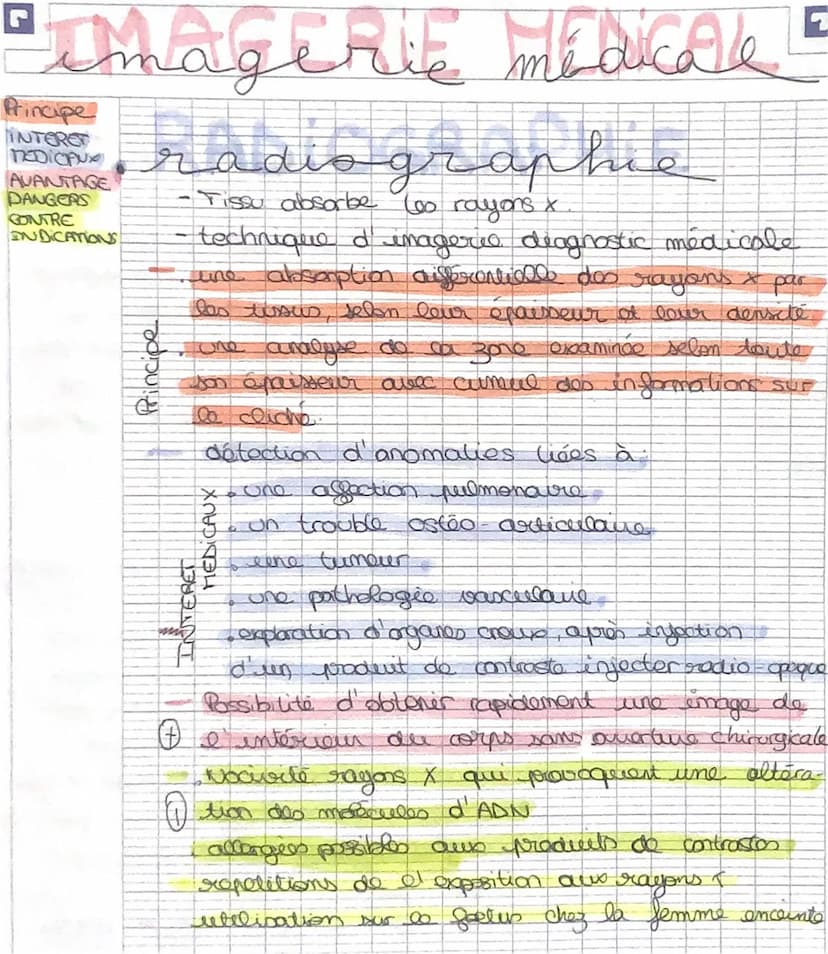 IMAGERIE MÉDICAL
imagerie médicale
Principe
INTERET
MEDICAUX
AVANTAGE
DANGERS
CONTRE
INDICATIONS
RADIOGRAPHIE
radiographie
- Tissu absorbe les rayons x.
- technique d'imagerie diagnostic médicale
Principe
- . une absorption différentielle des rayons x par
les tissus, selon leur épaisseur et leur densité
. une analyse de la zone examinée selon toute
son épaisseur avec cumul des informations sur
le cliché.
INTERET
MEDICAUX
- détection d'anomalies liées à :
. une affection pulmonaire.
. un trouble ostéo-articulaire
. une tumeur
. une pathologie vasculaire.
. exploration d'organes creux, après injection
d'un produit de contraste injecter radio-opaque
- Possibilité d'obtenir rapidement une image de
+ l'intérieur du corps sans ouverture chirurgicale
- . Nocivité rayons X qui provoquent une altéra-
! tion des molécules d'ADN
allergies possibles aux produits de contrastes
repetitions de l'exposition aux rayons
utilisation sur le foetus chez la femme enceinte